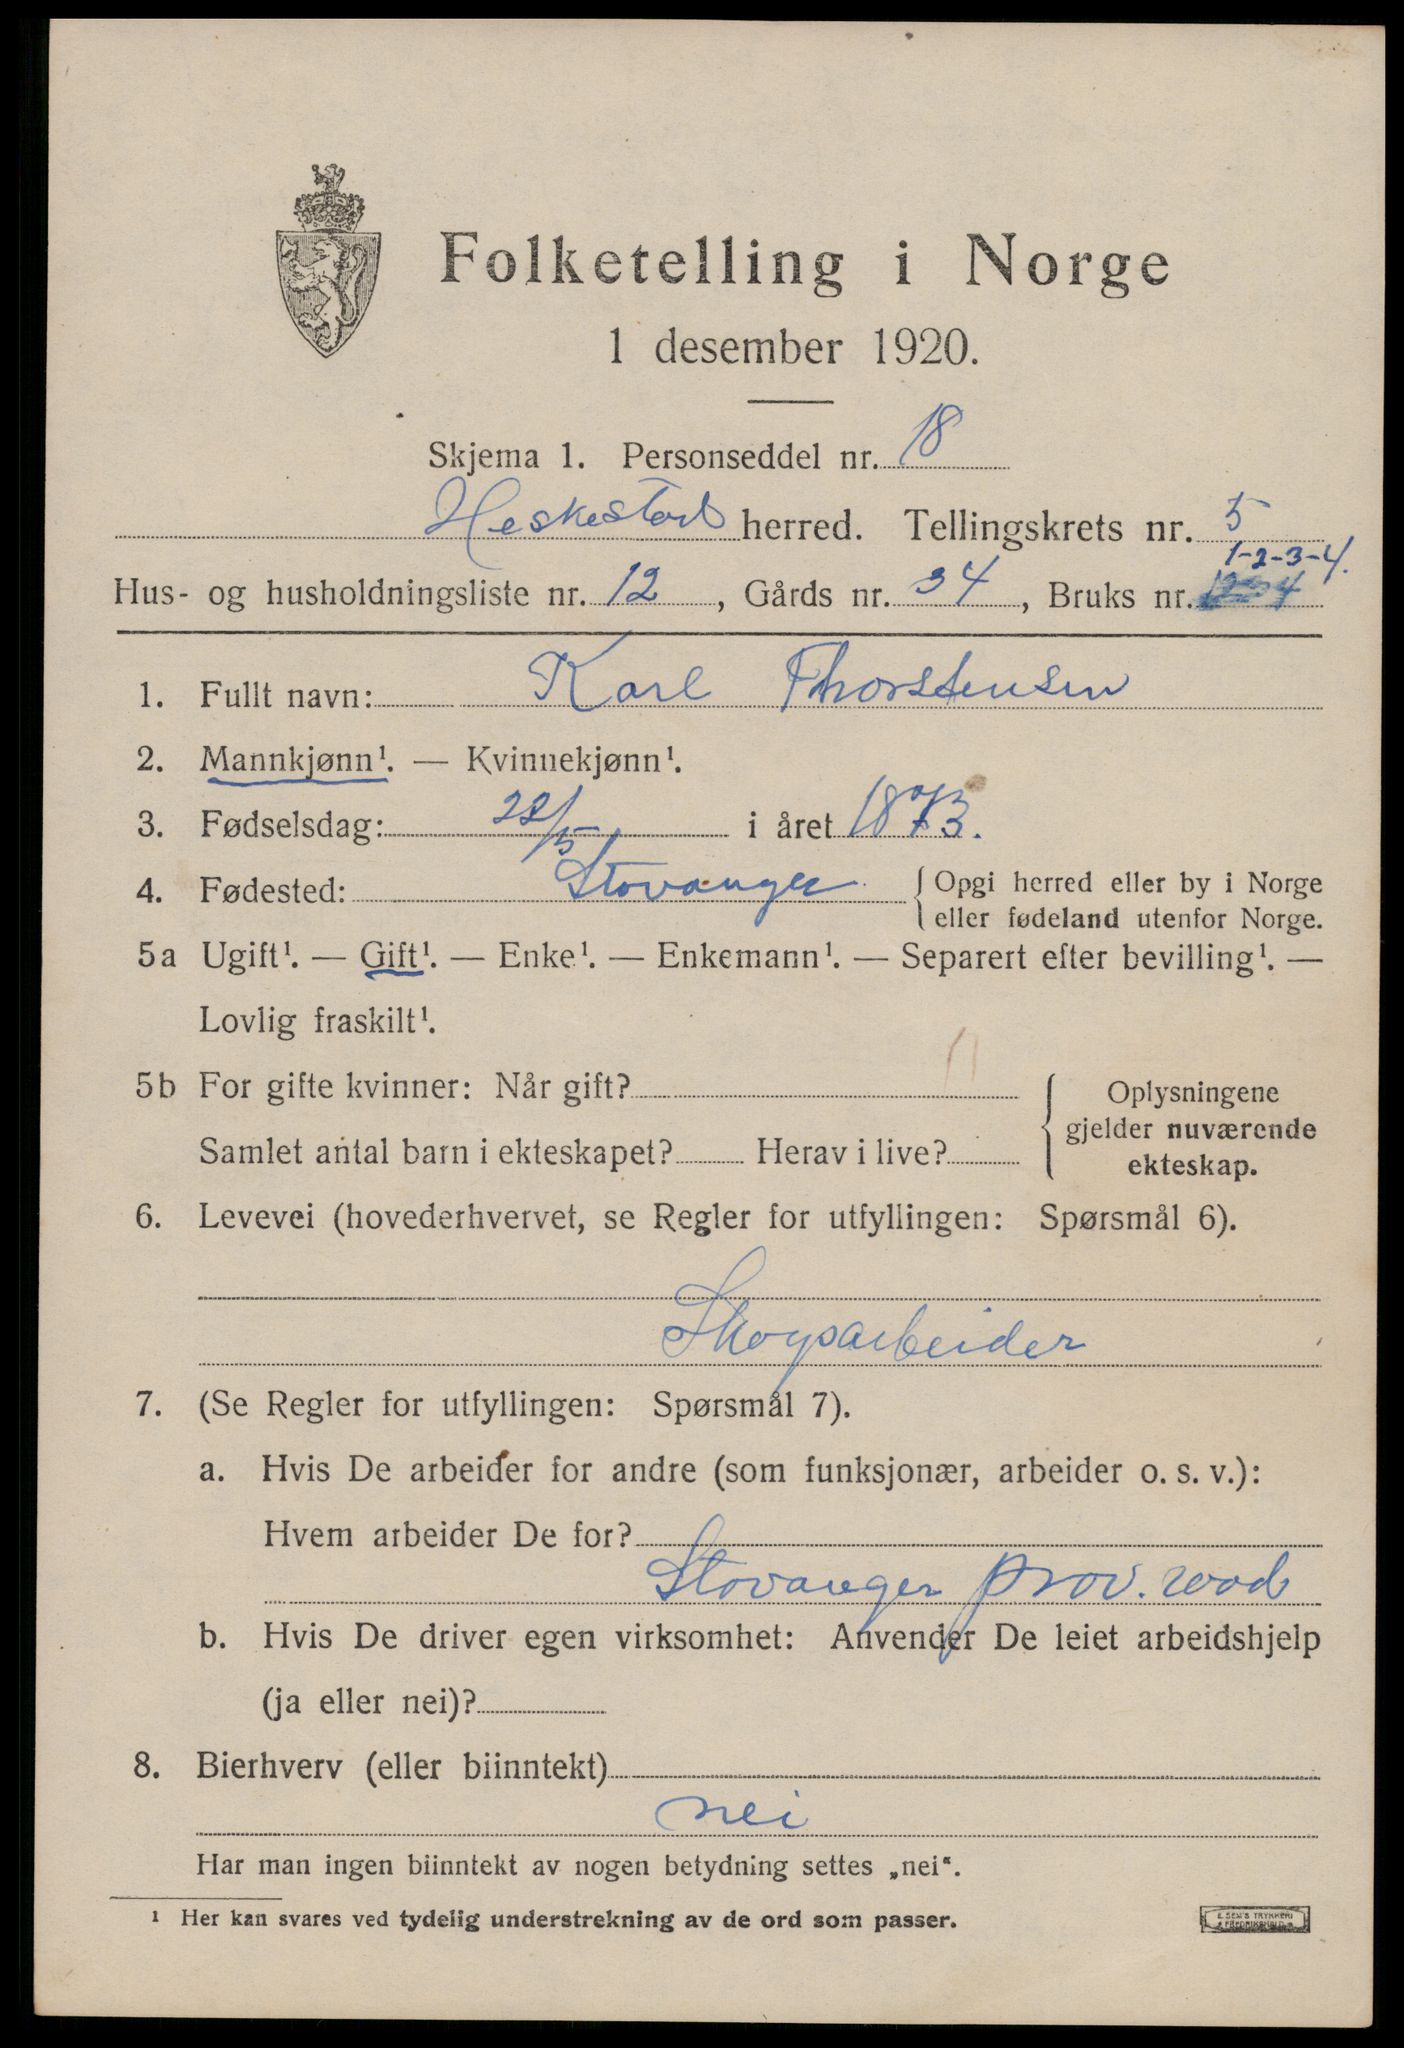 Folketelling i Norge
1 desember 1920.
Skjema 1. Personseddel nr. 18
Heskestad herred. Tellingskrets nr. 5
1-2-3-4.
Hus- og husholdningsliste nr. 12, Gårds nr. 34, Bruks nr.
1. Fullt navn: Karl Thorstensen
2. Mannkjønn¹. — Kvinnekjønn¹.
3. Fødselsdag: 22/5 i året 1873.
4. Fødested: Stavanger { Opgi herred eller by i Norge
eller fødeland utenfor Norge.
5a Ugift¹. — Gift¹. — Enke¹. — Enkemann¹. — Separert efter bevilling¹. —
Lovlig fraskilt¹.
5b For gifte kvinner: Når gift?
Samlet antal barn i ekteskapet? Herav i live?
{ Oplysningene
gjelder nuværende
ekteskap.
6. Levevei (hovederhvervet, se Regler for utfyllingen: Spørsmål 6).
Skogsarbeider
7. (Se Regler for utfyllingen: Spørsmål 7).
a. Hvis De arbeider for andre (som funksjonær, arbeider o. s. v.):
Hvem arbeider De for?
Stavanger prov. wod
b. Hvis De driver egen virksomhet: Anvender De leiet arbeidshjelp
(ja eller nei)?
8. Bierhverv (eller biinntekt)
nei
Har man ingen biinntekt av nogen betydning settes „nei“.
¹ Her kan svares ved tydelig understrekning av de ord som passer.
E. SEM'S TRYKKERI
FREDRIKSHALD